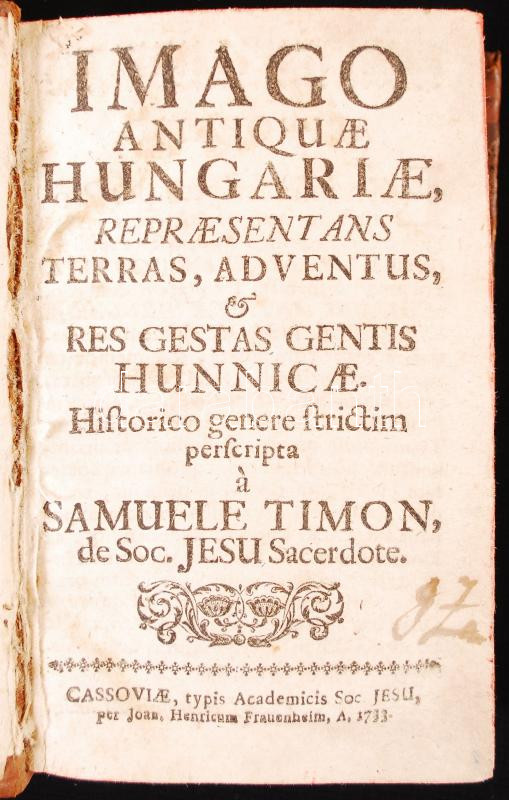 IMAGO
ANTIQUÆ
HUNGARIÆ,
REPRÆSENTANS
TERRAS, ADVENTUS,
&
RES GESTAS GENTIS
HUNNICÆ.
Hiſtorico genere ſtrictim
perſcripta
à
SAMUELE TIMON,
de Soc. JESU Sacerdote.
CASSOVIÆ, typis Academicis Soc JESU,
per Joan. Henricum Frauenheim, A. 1733.